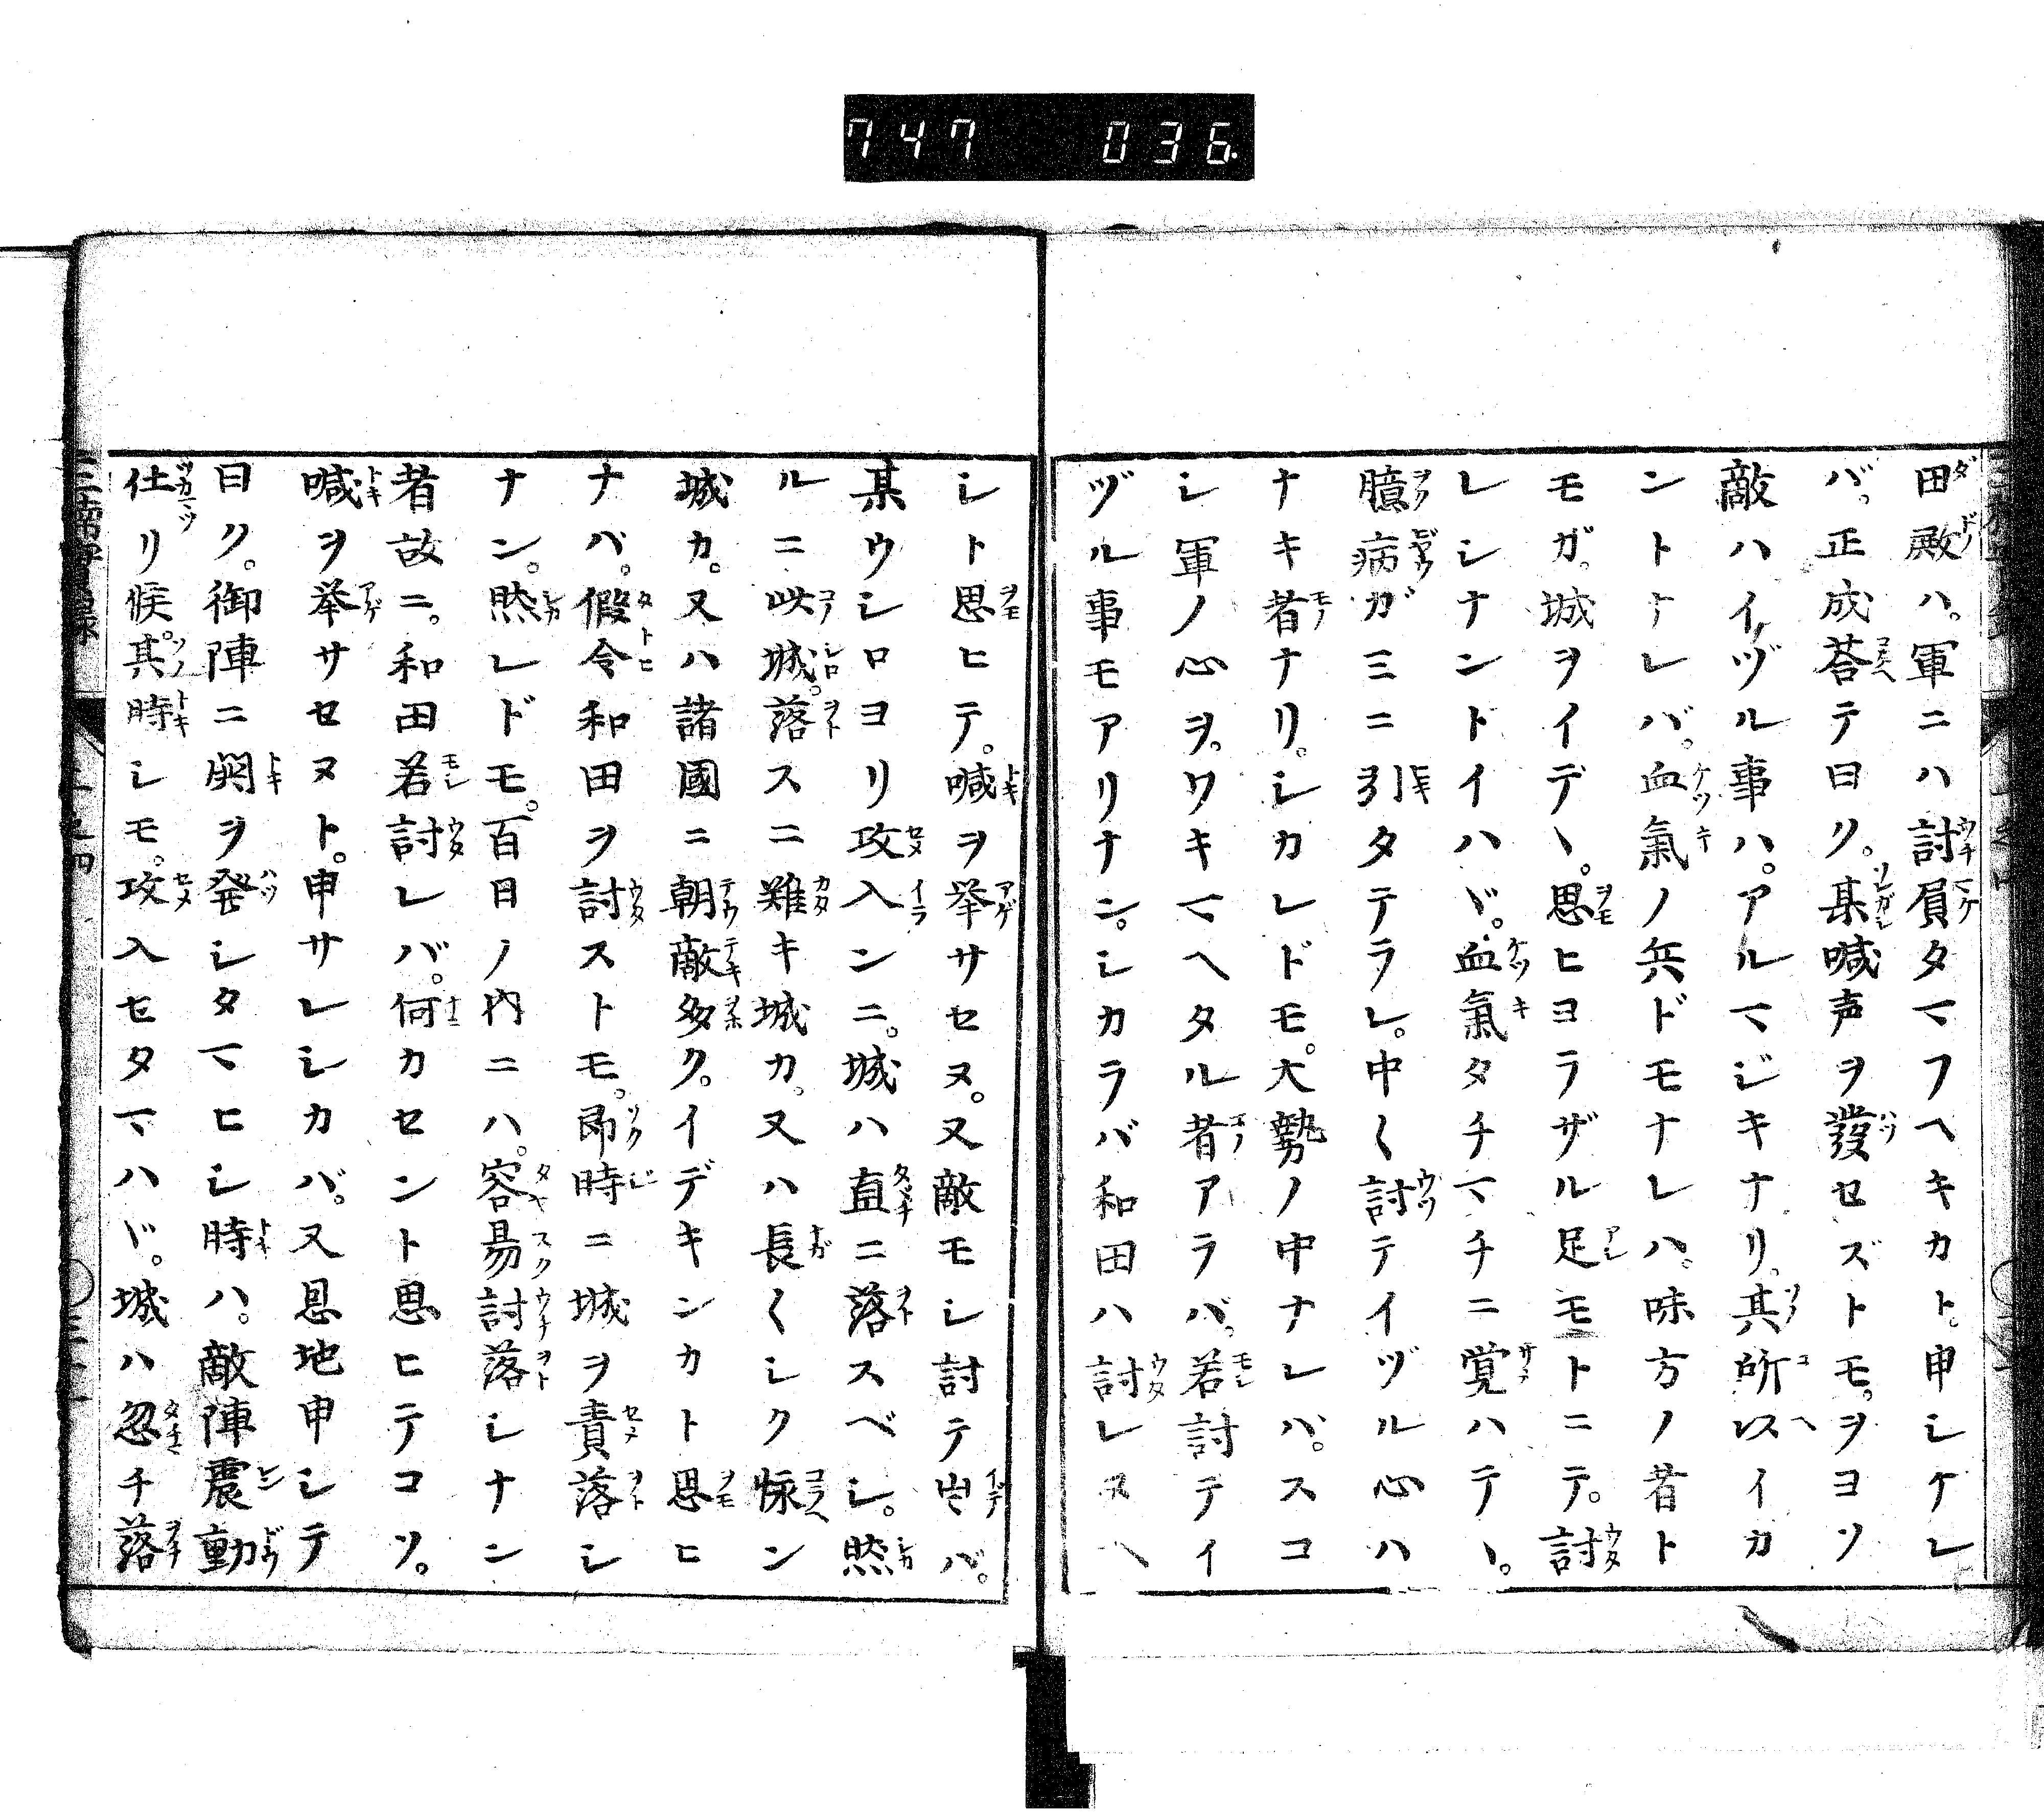 747 036.
田殿ハ。軍ニハ討負タマフヘキカト。申シケレ
バ。正成荅テ曰ク。某喊声ヲ發セズトモ。ヲヨソ
敵ハイヅル事ハ。アルマジキナリ。其所以イカ
ントナレバ。血氣ノ兵ドモナレハ。味方ノ者ト
モガ。城ヲイデヽ。思ヒヨラザル足モトニテ。討
レシナントイハヾ。血氣タチマチニ覚ハテヽ。
臆病ガミニ引タテラレ。中〱討テイヅル心ハ
ナキ者ナリ。シカレドモ。大勢ノ中ナレバ。スコ
シ軍ノ心ヲ。ワキマヘタル者アラバ。若討テイ
ヅル事モアリナン。シカラバ和田ハ討レヌヘ
シト思ヒテ。喊ヲ挙サセヌ。又敵モシ討テ出バ。
某ウシロヨリ攻入ンニ。城ハ直ニ落スベシ。然
ルニ此城。落スニ難キ城カ。又ハ長〱シク怺ン
城カ。又ハ諸國ニ朝敵多ク。イデキンカト思ヒ
ナバ。假令和田ヲ討ストモ。即時ニ城ヲ責落シ
ナン。然レドモ。百日ノ内ニハ。容易討落シナン
者故ニ。和田若討レバ。何カセント思ヒテコソ。
喊ヲ挙サセヌト。申サレシカバ。又恩地申シテ
曰ク。御陣ニ鬨ヲ発シタマヒシ時ハ。敵陣震動
仕リ候。其時シモ。攻入セタマハヾ。城ハ忽チ落